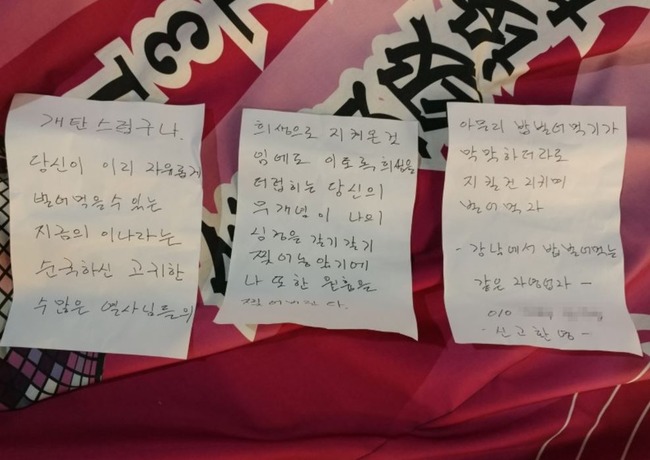 개탄스럽구나.
당신이 이리 자유롭게
벌어먹을수있는
지금의 이나라는
순국하신 고귀한
수많은 열사님들의
희생으로 지켜온것
임에도 이토록 희생을
더럽히는 당신의
무개념이 나의
심정을 갈기갈기
찢어놓았기에
나 또한 원흉을
찢어버린다.
아무리 밥벌어먹기가
막막하더라도
지킬건 지키며
벌어먹자
- 강남에서 밥벌어먹는
같은 자영업자 -
010
- 신고환영 -